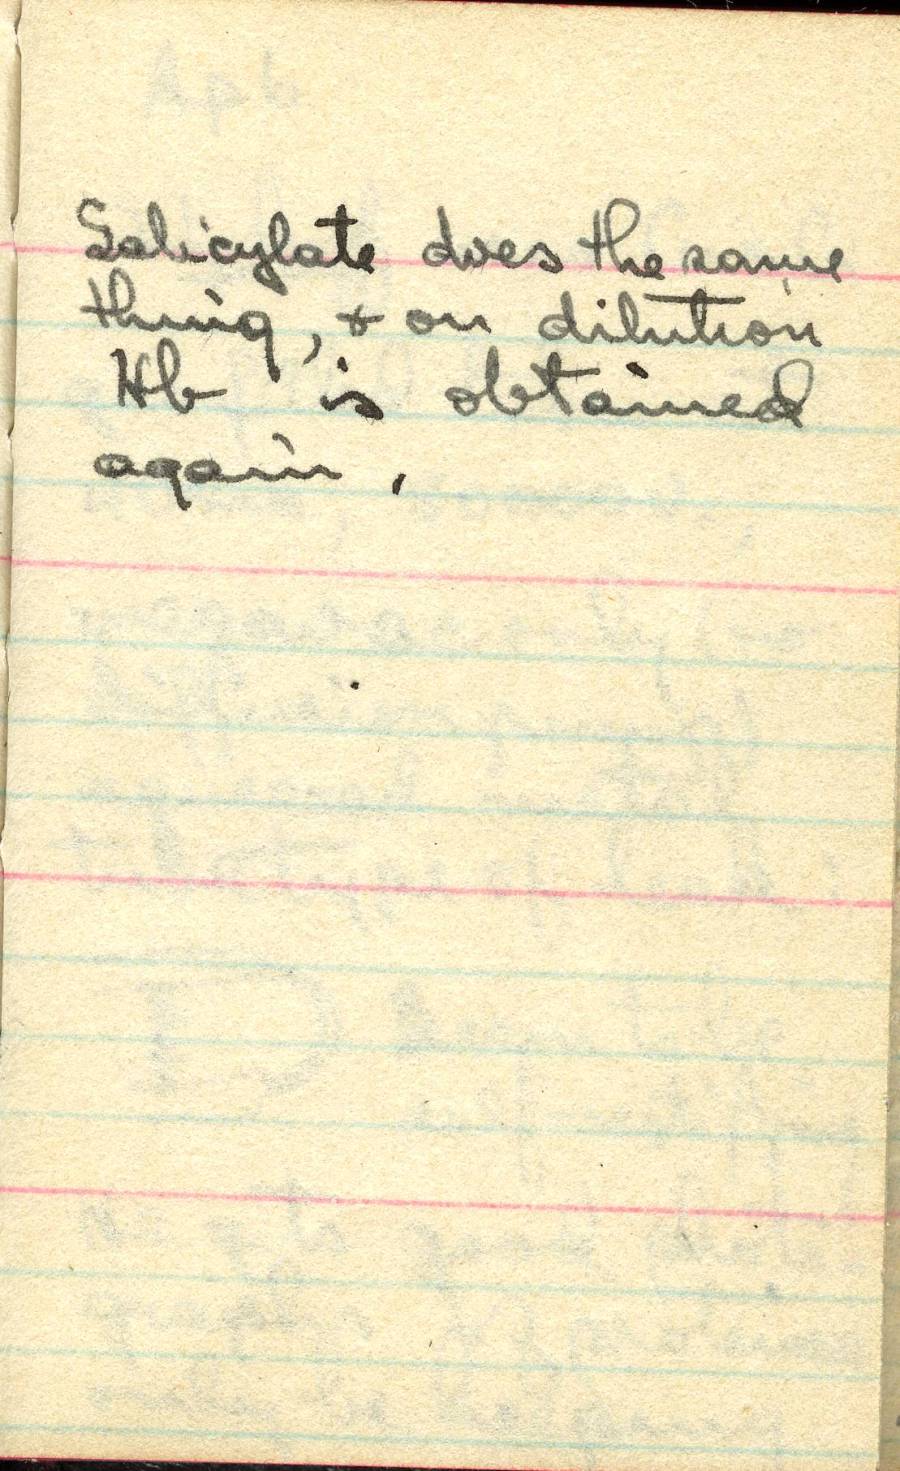 Salicylate does the same
thing, & on dilution
Hb is obtained
again.